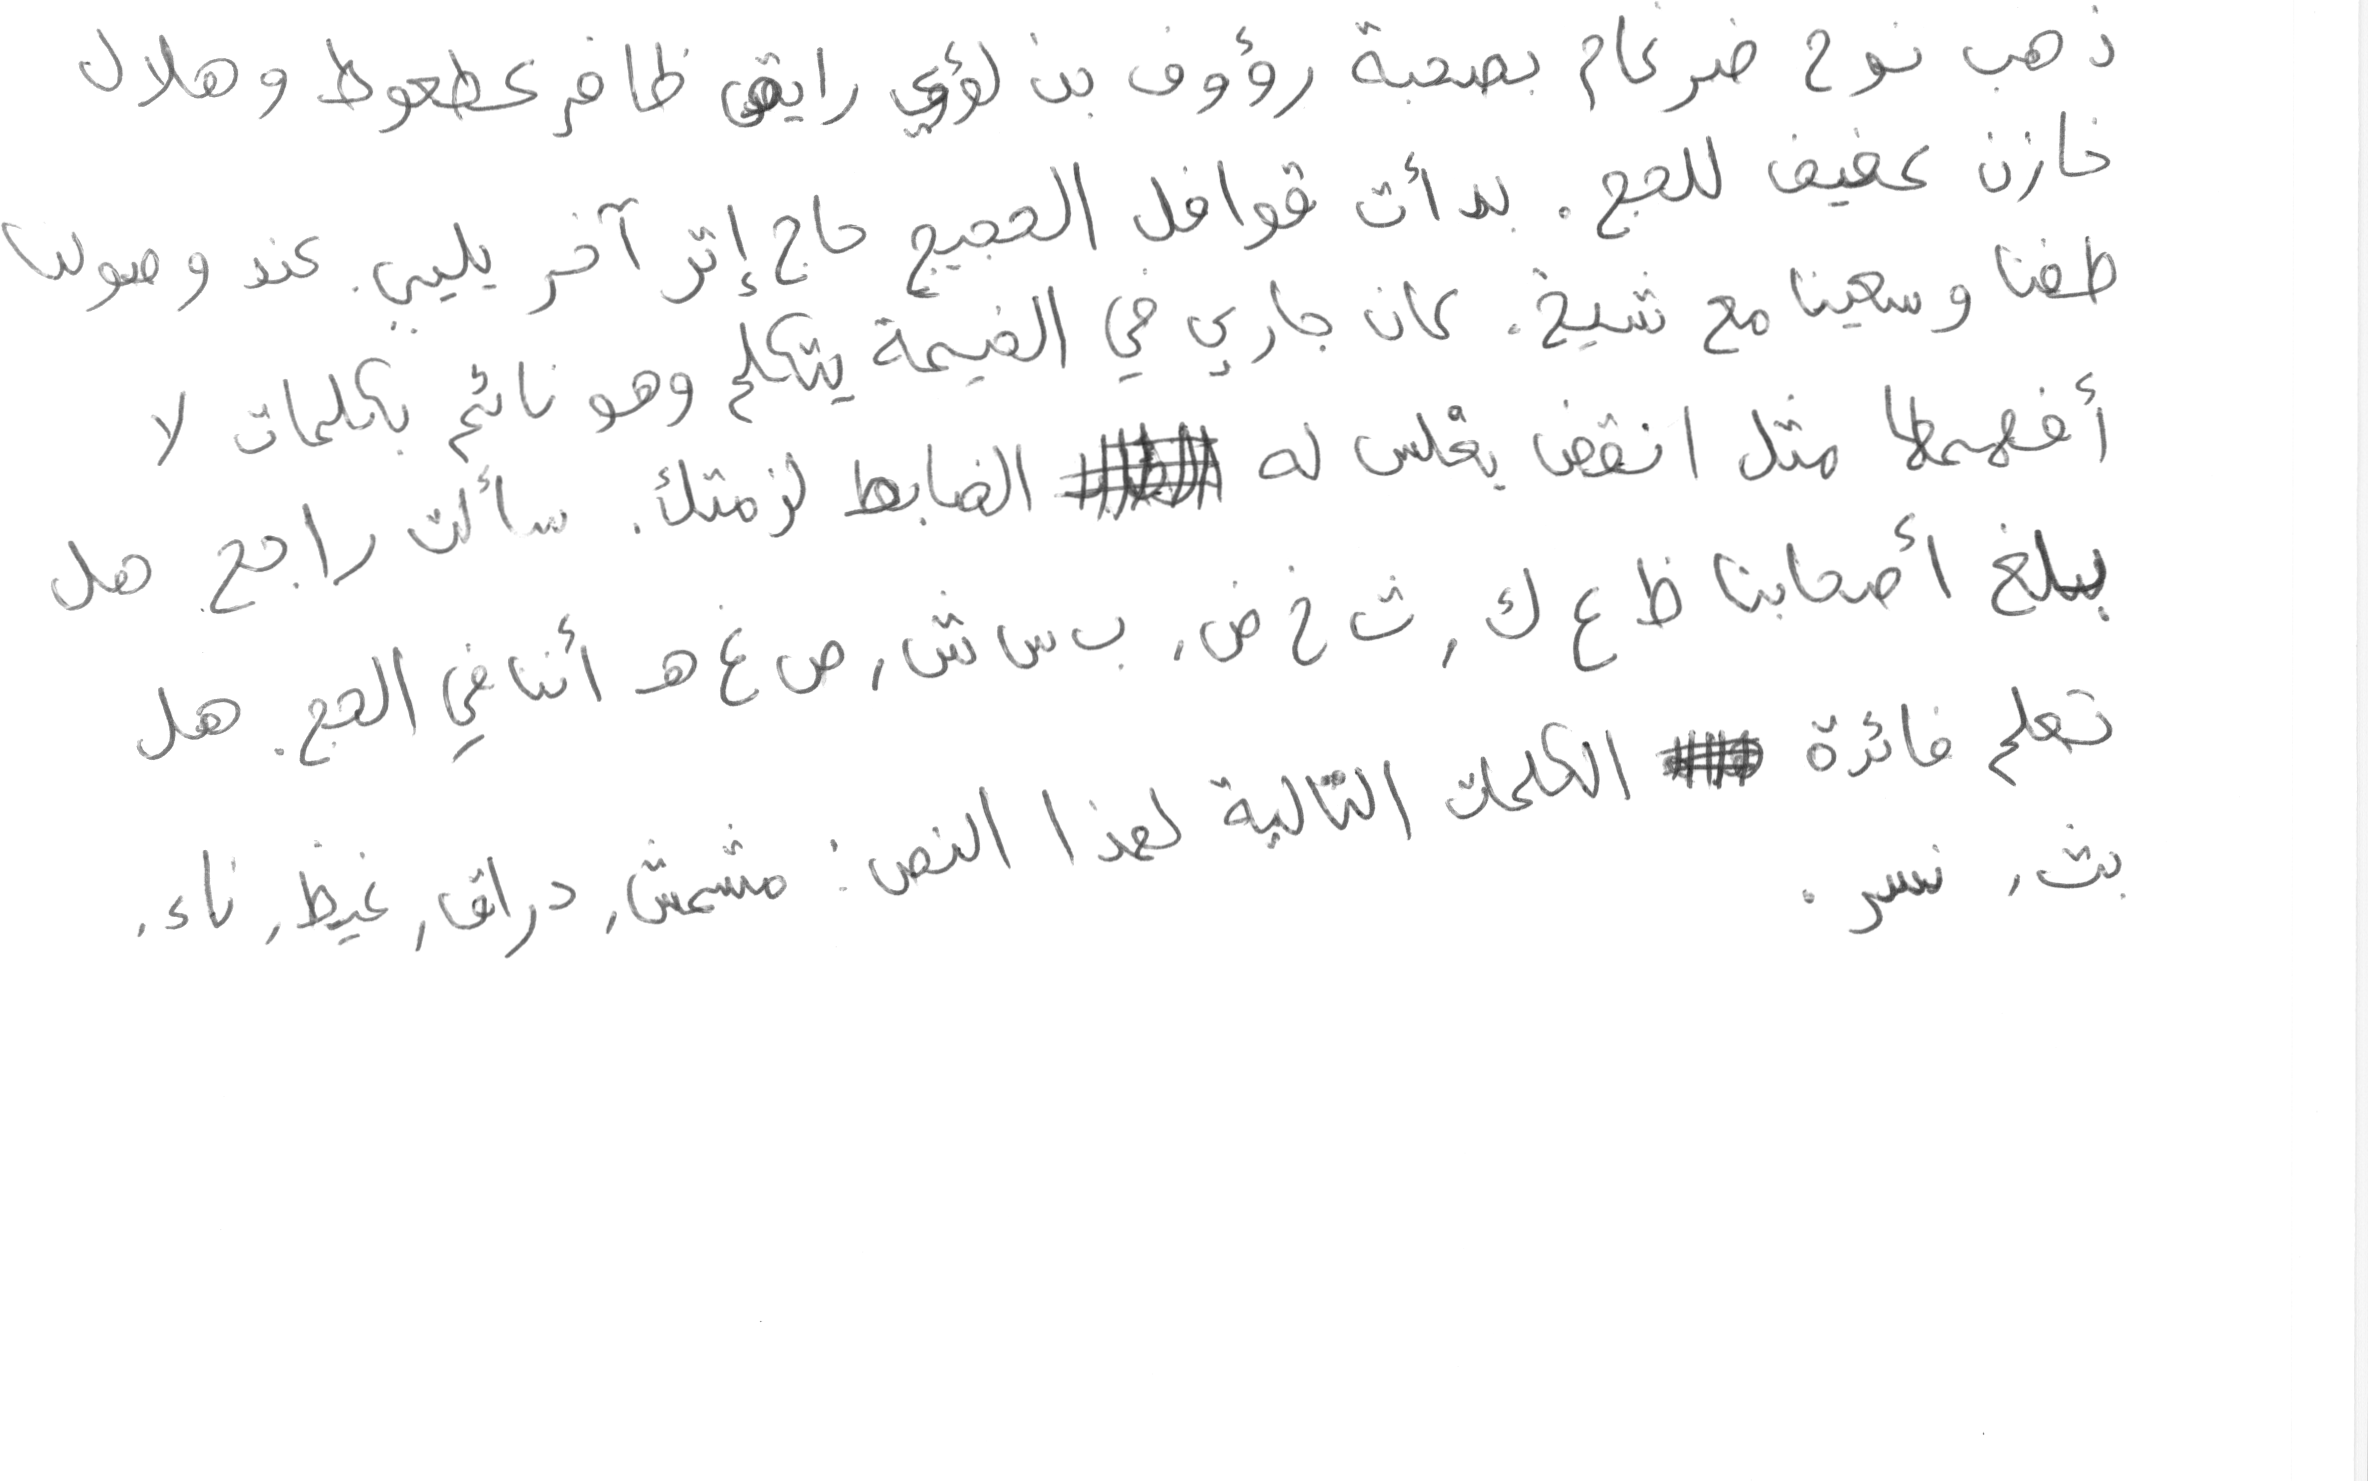 ذهب نوح ضرغام بصحبة رؤوف بن لؤي رايق ظافر عطعوط وهلال
خازن عفيف للحج. بدأت قوافل الحجيج حاج إثر آخر يلبي. عند وصولنا
طفنا وسعينا مع شيخ. كان جاري في الخيمة يتكلم وهو نائم بكلمات لا
أفهمها مثل انقض يغلس له الضابط لزمتك. سألت راجح هل
يبلغ أصحابنا ظ ع ك, ث خ ض, ب س ش, ص غ هـ أننا في الحج. هل
تعلم فائدة الكلمات التالية لهذا النص: مشمش, دراق, غيظ, ناء,
بث, نسر.